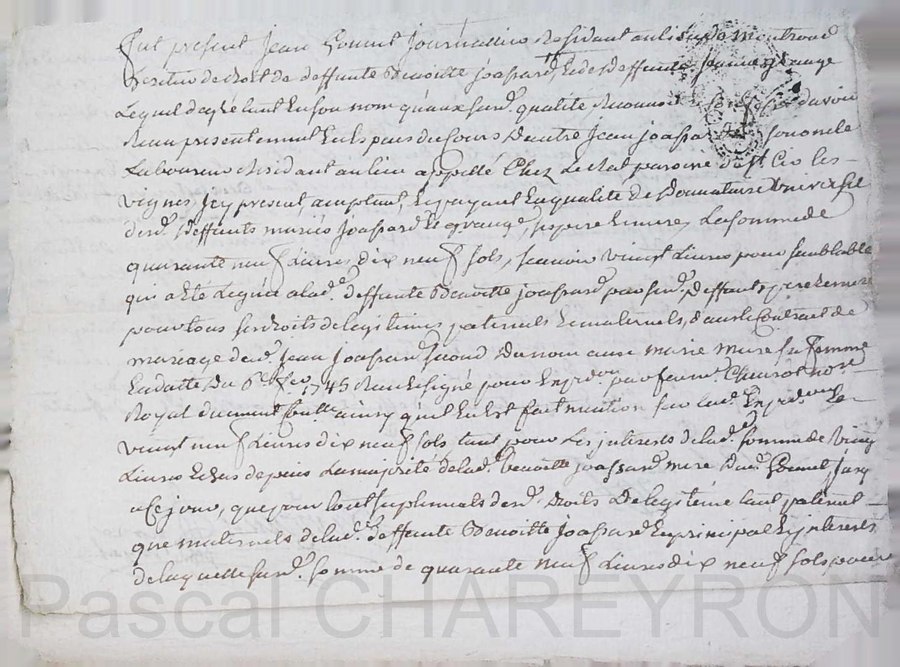 fut present Jean Gonnet Journallier Residant au lieu de montrond
heritier de droit de deffunte Benoitte joassard, Et de deffunte
Lequel de gré tant En son nom qu'aux surd. qualités Reconnoit avoir
Reçu presentement En Especes du Cours De autre Jean joassard second le
Laboureur Residant au lieu appellé Chez Le Rat paroisse de St Cir les
vignes, Icy present, acceptant, Et payant En qualité de Donnataire Universel
desd. deffunts mariés joassard Et grange, ses pere Et mere, La somme de
quarante neuf Livres dix neuf sols, scavoir vingt Livres pour semblable
qui a Eté Leguée a lad. deffunte Benoitte joassard par sesd. Deffunts pere Et mere
pour tous ses droits de legitimes paternels Et maternels, dans le Contract de
mariage dud. Jean Joassard second Du nom avec marie mure sa femme
En datte Du 6e fev. 1745 Reçu Et signé pour Expedon. par feu me. Chavrot not.re
Royal duement Contt. ainsy qu'il En Est fait mention sur lad. Expedon. Et
vingt neuf Livres dix neuf sols tant pour Les interests de lad. somme de vingt
Livres Echus depuis La majorité de lad. benoitte joassard mere dud. Gonnet jusq
a Ce jour, que pour tout suplement desd. Droits De legitime tant paternel
que maternels de lad. deffunte Benoitte Joassard En principal Et interests
de laquelle surd. somme de quarante neuf Livres dix neuf sols
Pascal CHAREYRON